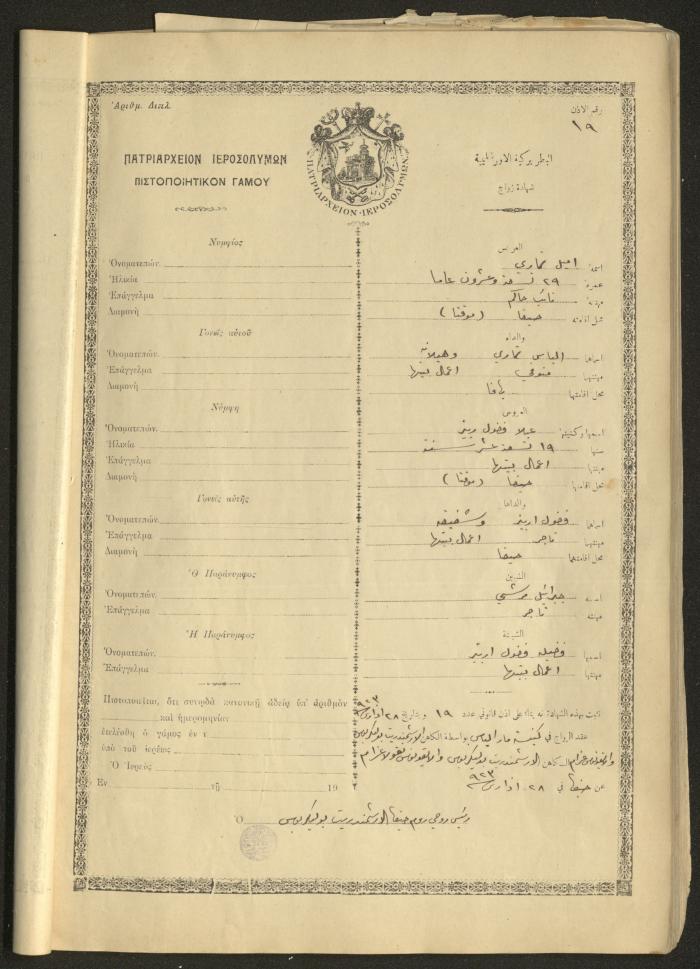 Ἀριθμ. Διπλ.
رقم الاذن
١٩
ΠΑΤΡΙΑΡΧΕΙΟΝ ΙΕΡΟΣΟΛΥΜΩΝ
ΠΙΣΤΟΠΟΙΗΤΙΚΟΝ ΓΑΜΟΥ
ΠΑΤΡΙΑΡΧΕΙΟΝ·ΙΕΡΟΣΟΛΥΜΩΝ
البطريركية الاورشليمية
شهادة زواج
Νυμφίος
Ὀνοματεπών.
Ἡλικία
Ἐπάγγελμα
Διαμονή
Γονεῖς αὐτοῦ
Ὀνοματεπών.
Ἐπάγγελμα
Διαμονή
Νύμφη
Ὀνοματεπών.
Ἡλικία
Ἐπάγγελμα
Διαμονή
Γονεῖς αὐτῆς
Ὀνοματεπών.
Ἐπάγγελμα
Διαμονή
Ὁ Παράνυμφος
Ὀνοματεπών.
Ἐπάγγελμα
Ἡ Παράνυμφος
Ὀνοματεπών.
Ἐπάγγελμα
Πιστοποιεῖται, ὅτι συνῳδὰ κανονικῇ ἀδείᾳ ὑπ' ἀριθμὸν
καὶ ἡμερομηνίαν
ἐτελέσθη ὁ γάμος ἐν τ
ὑπὸ τοῦ ἱερέως
Ὁ Ἱερεὺς
Ἐν τῇ 19
العريس
اسمه اميل تماري
عمره ٢٩ تسعة وعشرون عاما
مهنته نائب حاكم
محل اقامته حيفا (موقتا)
والداه
اسماهما الياس تماري وهيلانه
مهنتهما اعمال بيتها
محل اقامتهما يافا
العروس
اسمها وكنيتها فضول
سنها ١٩ تسعة عشر سنة
مهنتها اعمال بيتها
محل اقامتها حيفا (موقتا)
والداها
اسماهما فضول وشفيقه
مهنتهما تاجر اعمال بيتها
محل اقامتهما حيفا
الشبين
اسمه جبرائيل
مهنته تاجر
الشبينة
اسمها فضيله فضول
مهنتها اعمال بيتها
اثبت بهذه الشهادة انه بناء على اذن قانوني عدد ١٩ وبتاريخ ٢٨ اذار ٩٢٣
عقد الزواج في كنيسة مار الياس بواسطة الكاهن الارشمندريت بوليكربوس
الكاهن الارشمندريت بوليكربوس
عن حيفا في ٢٨ اذار ٩٢٣
Ὁ رئيس روحي روم حيفا الارشمندريت بوليكربوس